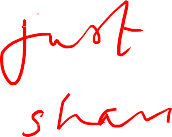 just
shan